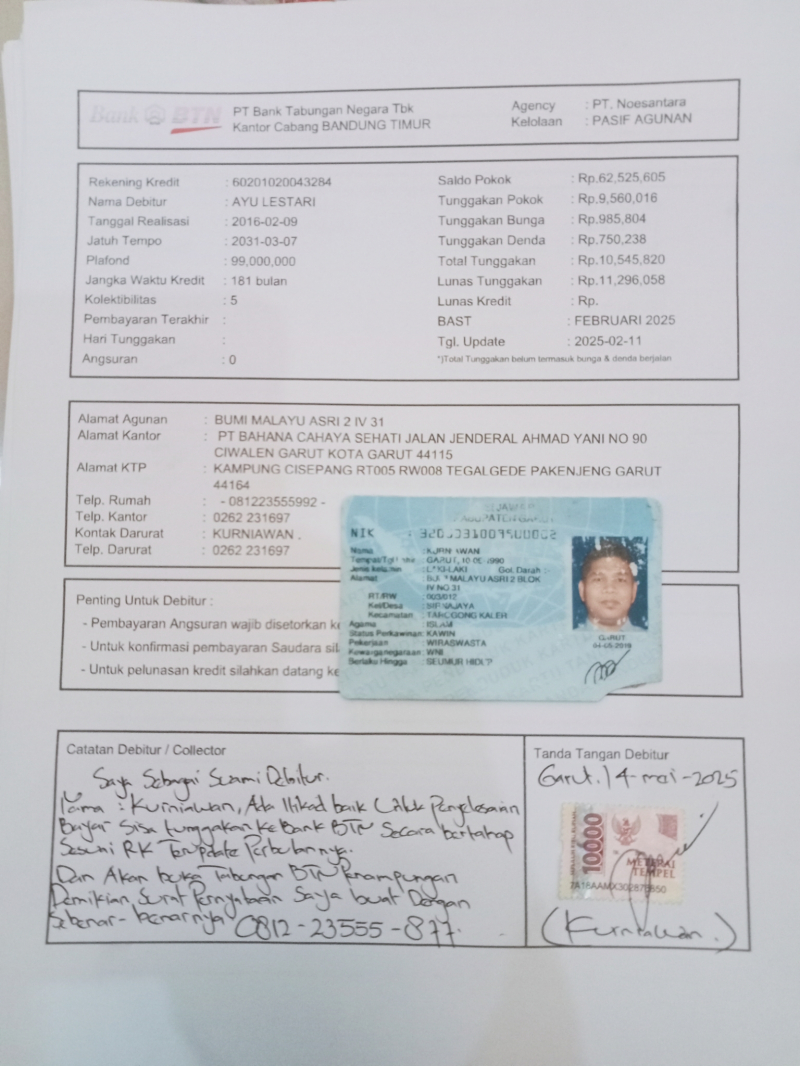 Bank BTN
PT Bank Tabungan Negara Tbk
Kantor Cabang BANDUNG TIMUR
Agency : PT. Noesantara
Kelolaan : PASIF AGUNAN
Rekening Kredit : 60201020043284
Nama Debitur : AYU LESTARI
Tanggal Realisasi : 2016-02-09
Jatuh Tempo : 2031-03-07
Plafond : 99,000,000
Jangka Waktu Kredit : 181 bulan
Kolektibilitas : 5
Pembayaran Terakhir :
Hari Tunggakan :
Angsuran : 0
Saldo Pokok : Rp.62,525,605
Tunggakan Pokok : Rp.9,560,016
Tunggakan Bunga : Rp.985,804
Tunggakan Denda : Rp.750,238
Total Tunggakan : Rp.10,545,820
Lunas Tunggakan : Rp.11,296,058
Lunas Kredit : Rp.
BAST : FEBRUARI 2025
Tgl. Update : 2025-02-11
*)Total Tunggakan belum termasuk bunga & denda berjalan
Alamat Agunan : BUMI MALAYU ASRI 2 IV 31
Alamat Kantor : PT BAHANA CAHAYA SEHATI JALAN JENDERAL AHMAD YANI NO 90
CIWALEN GARUT KOTA GARUT 44115
Alamat KTP : KAMPUNG CISEPANG RT005 RW008 TEGALGEDE PAKENJENG GARUT
44164
Telp. Rumah : - 081223555992 -
Telp. Kantor : 0262 231697
Kontak Darurat : KURNIAWAN .
Telp. Darurat : 0262 231697
NIK :
Nama :
Tempat/Tgl : GARUT,
Jenis kelamin : Gol. Darah :-
Alamat : MALAYU ASRI 2 BLOK
IV NO 31
RT/RW : 003/012
Kel/Desa
Kecamatan : TAROGONG KALER
Agama : ISLAM
Status Perkawinan: KAWIN
Pekerjaan : WIRASWASTA
Kewarganegaraan: WNI
Berlaku Hingga : SEUMUR
GARUT
Penting Untuk Debitur :
- Pembayaran Angsuran wajib disetorkan
- Untuk konfirmasi pembayaran Saudara
- Untuk pelunasan kredit silahkan datang
Catatan Debitur / Collector
Saya Sebagai Suami Debitur.
Nama : Kurniawan, Ada Itikad baik Untuk Penyelesaian
Bayar Sisa tunggakan Ke Bank BTN Secara bertahap
Sesuai RK Terupdate Perbulannya.
Dan Akan buka Tabungan BTN Penampungan
Demikian Surat Pernyataan Saya buat Dengan
Sebenar-benarnya 0812-23555-877.
Tanda Tangan Debitur
Garut, 14-mei-2025
10000
METERAI
TEMPEL
(Kurniawan.)